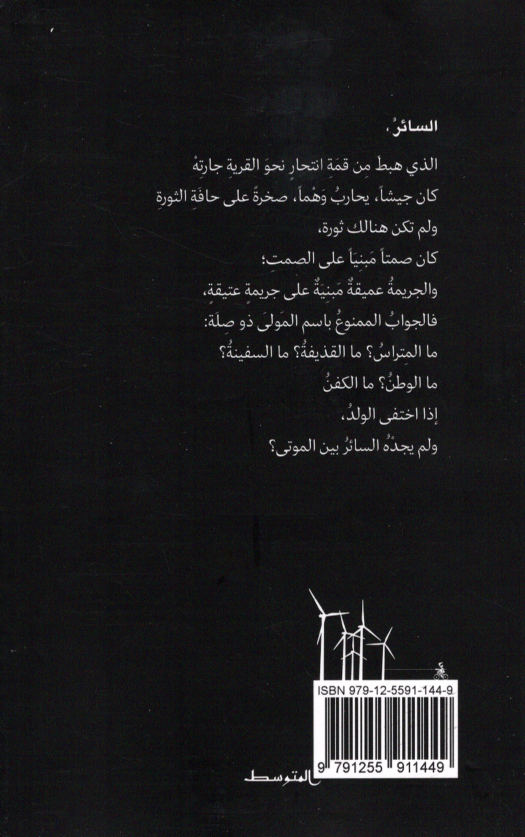 السائرُ،
الذي هبطَ مِن قمّةِ انتحارٍ نحوَ القريةِ جارتهْ
كان جيشاً، يحاربُ وَهْماً، صخرةً على حافّةِ الثورةِ
ولم تكن هنالك ثورة،
كان صمتاً مَبنيّاً على الصمتِ؛
والجريمةُ عميقةٌ مَبنيّةٌ على جريمةٍ عتيقةٍ،
فالجوابُ الممنوعُ باسم المَولَى ذو صِلَة:
ما المِتراسُ؟ ما القذيفةُ؟ ما السفينةُ؟
ما الوطنُ؟ ما الكفنُ
إذا اختفى الولدُ،
ولم يجدْهُ السائرُ بين الموتى؟
ISBN 979-12-5591-144-9
9 791255 911449
المتوسط